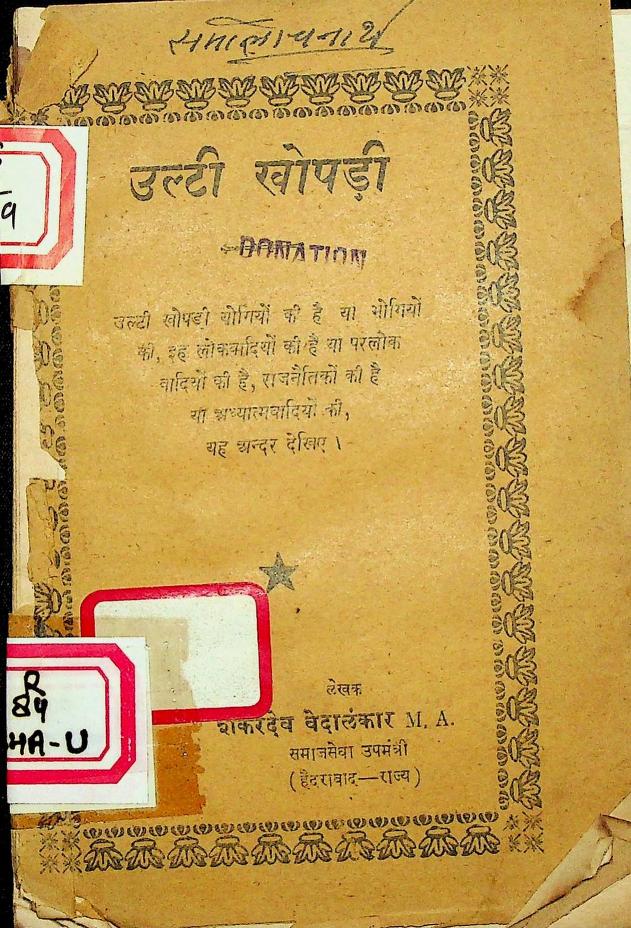 समालोचनार्थ
उल्टी खोपड़ी
DONATION
उल्टी खोपड़ी योगियों की है या भोगियों
की, इह लोकवादियों की है या परलोक
वादियों की है, राजनैतिकों की है
या अध्यात्मवादियों की,
यह अन्दर देखिए ।
लेखक
शंकरदेव वेदालंकार M, A.
समाजसेवा उपमंत्री
(हैदराबाद—राज्य)
R
84
HA-U